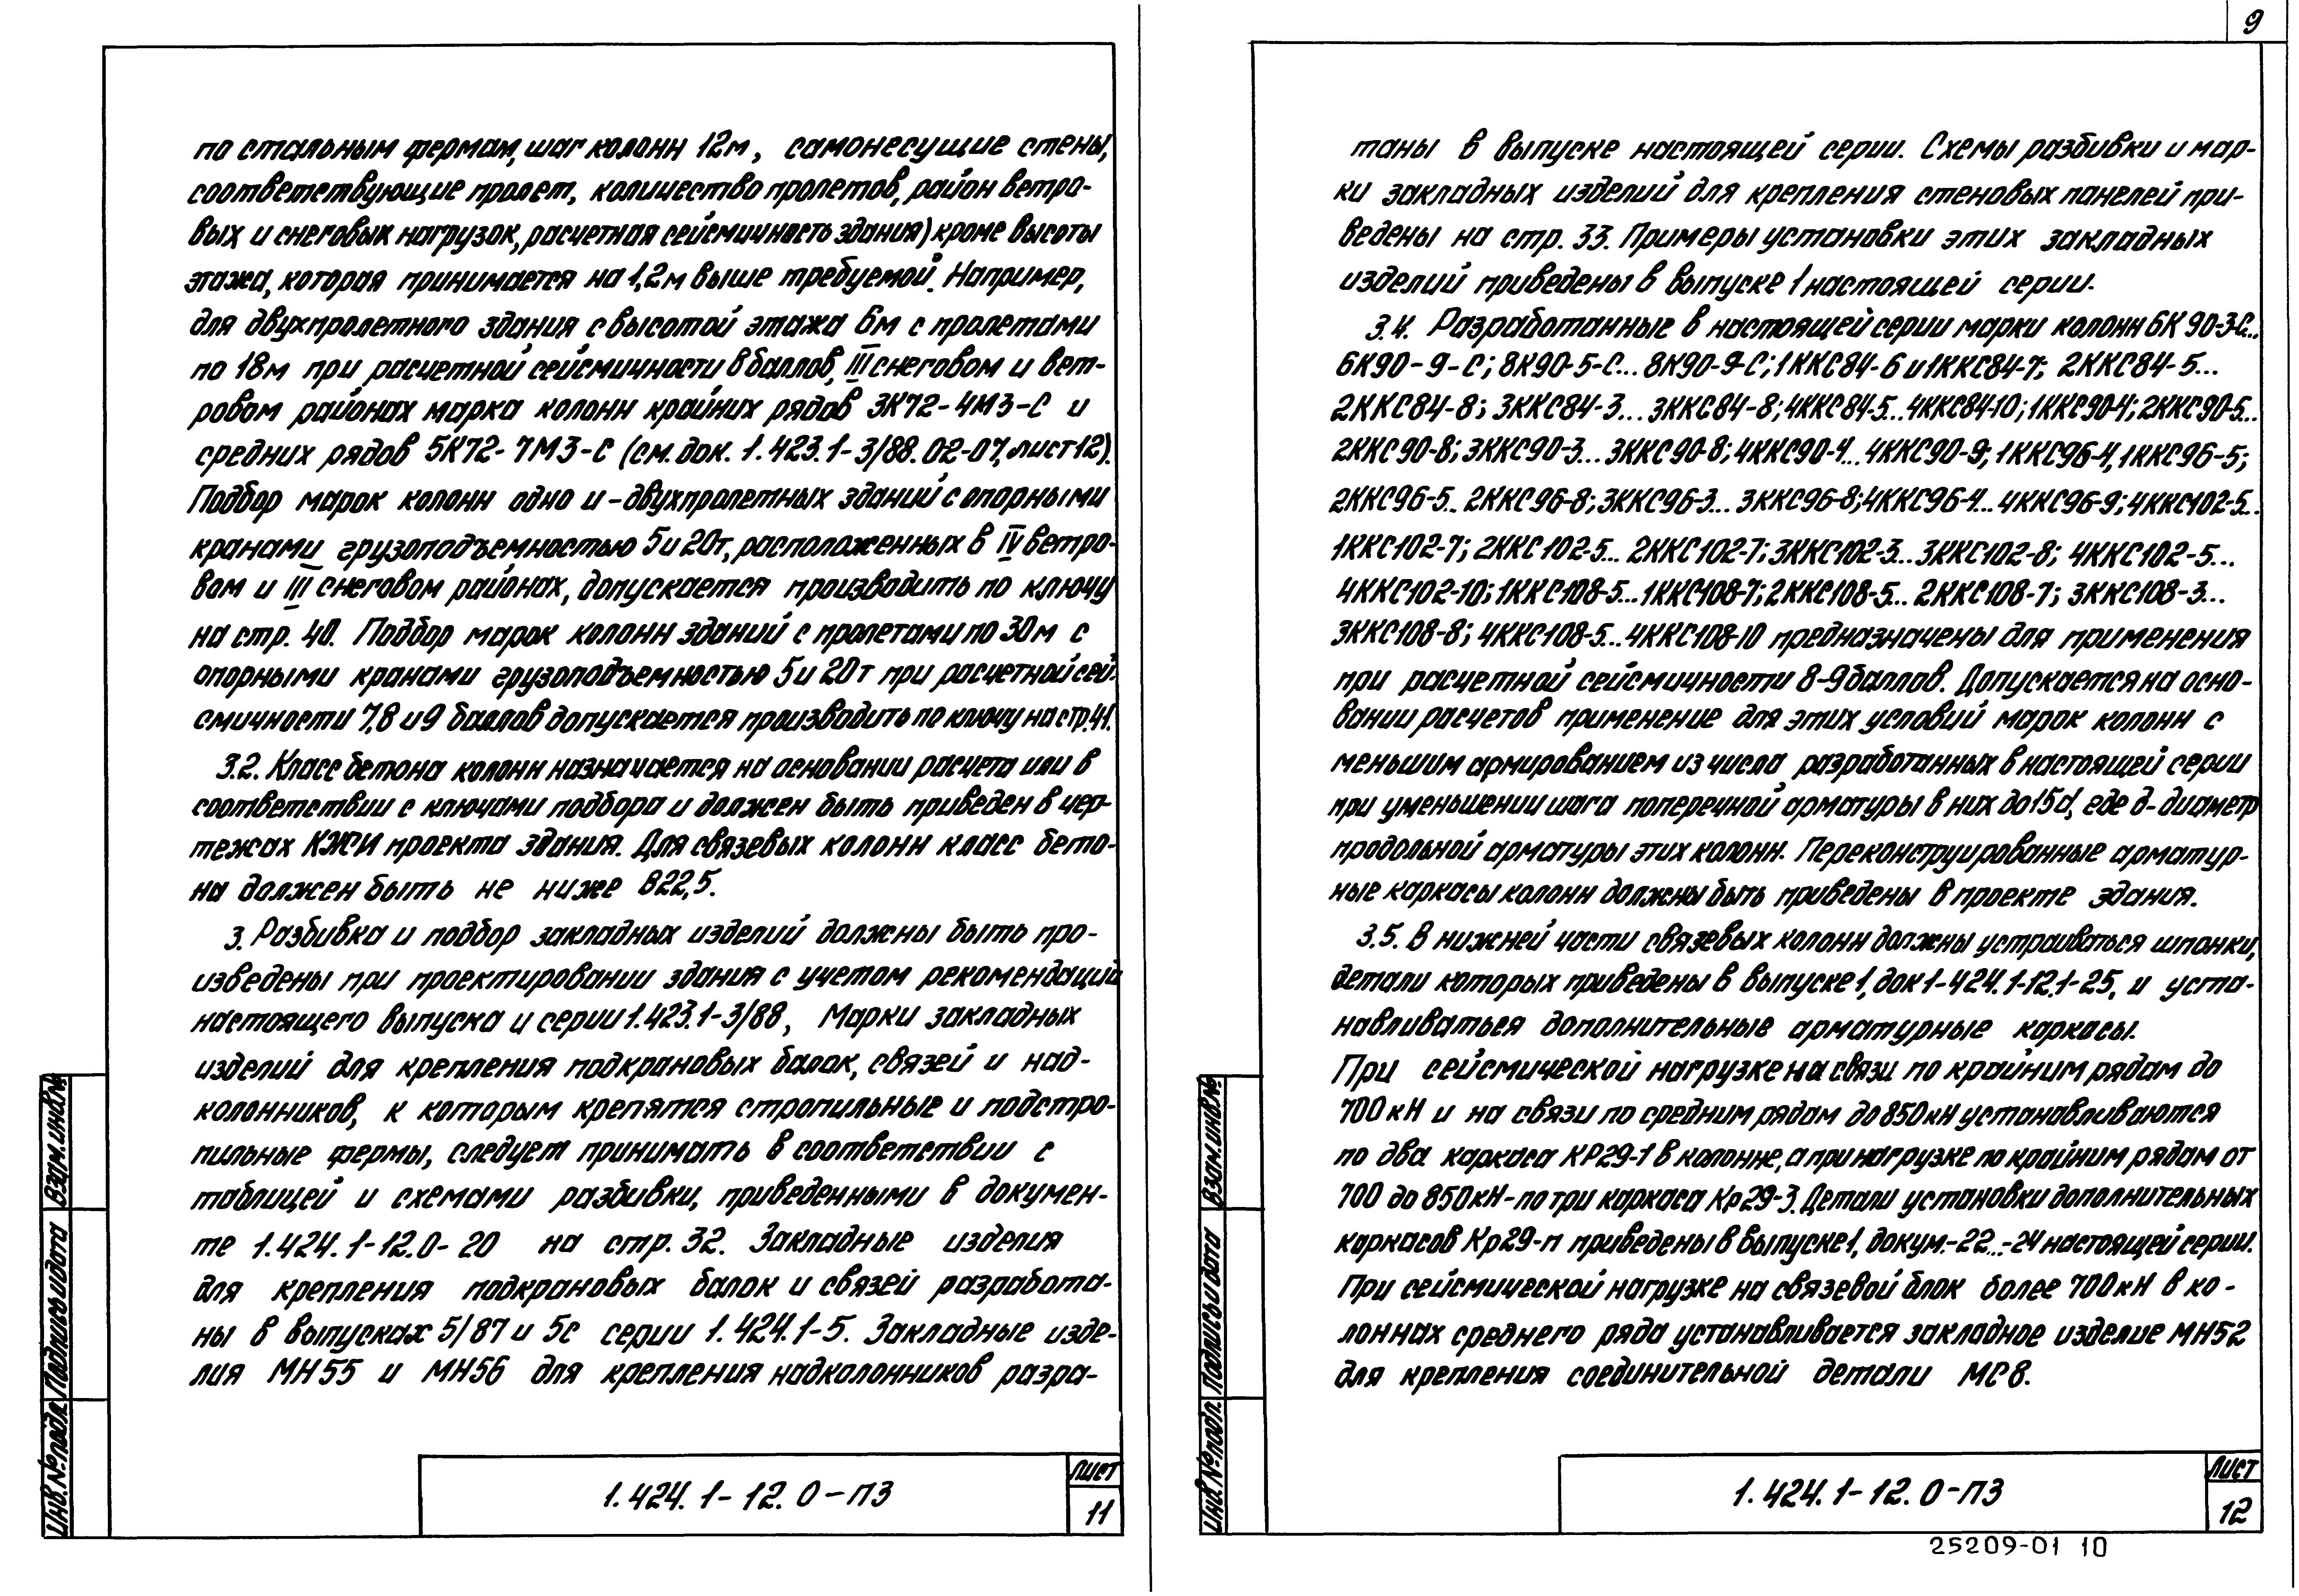 9
по стальным фермам, шаг колонн 12м, самонесущие стены,
соответствующие пролет, количество пролетов, район ветро-
вых и снеговых нагрузок, расчетная сейсмичность здания) кроме высоты
этажа, которая принимается на 1,2м выше требуемой. Например,
для двухпролетного здания с высотой этажа 6м с пролетами
по 18м при расчетной сейсмичности 8 баллов, III снеговом и вет-
ровом районах марка колонн крайних рядов 3К72-4М3-С и
средних рядов 5К72-7М3-С (см. док. 1.423.1-3/88.02-07, лист 12).
Подбор марок колонн одно и -двухпролетных зданий с опорными
кранами грузоподъемностью 5 и 20т, расположенных в IV ветро-
вом и III снеговом районах, допускается производить по ключу
на стр. 40. Подбор марок колонн зданий с пролетами по 30м с
опорными кранами грузоподъемностью 5 и 20т при расчетной сей-
смичности 7,8 и 9 баллов допускается производить по ключу на стр. 41.
3.2. Класс бетона колонн назначается на основании расчета или в
соответствии с ключами подбора и должен быть приведен в чер-
тежах КЖИ проекта здания. Для связевых колонн класс бето-
на должен быть не ниже В22,5.
3. Разбивка и подбор закладных изделий должны быть про-
изведены при проектировании здания с учетом рекомендаций
настоящего выпуска и серии 1.423.1-3/88, Марки закладных
изделий для крепления подкрановых балок, связей и над-
колонников, к которым крепятся стропильные и подстро-
пильные фермы, следует принимать в соответствии с
таблицей и схемами разбивки, приведенными в докумен-
те 1.424.1-12.0-20 на стр. 32. Закладные изделия
для крепления подкрановых балок и связей разработа-
ны в выпусках 5/87 и 5с серии 1.424.1-5. Закладные изде-
лия МН55 и МН56 для крепления надколонников разра-
Взам. инв.№
Подпись и дата
Инв.№ подл.
1.424.1-12.0-ПЗ
Лист
11
таны в выпуске настоящей серии. Схемы разбивки и мар-
ки закладных изделий для крепления стеновых панелей при-
ведены на стр. 33. Примеры установки этих закладных
изделий приведены в выпуске 1 настоящей серии.
3.4. Разработанные в настоящей серии марки колонн 6К90-3-С...
6К90-9-С; 8К90-5-С... 8К90-9-С; 1ККС84-6 и 1ККС84-7; 2ККС84-5...
2ККС84-8; 3ККС84-3... 3ККС84-8; 4ККС84-5... 4ККС84-10; 1ККС90-4; 2ККС90-5...
2ККС90-8; 3ККС90-3... 3ККС90-8; 4ККС90-4... 4ККС90-9; 1ККС96-4, 1ККС96-5;
2ККС96-5.. 2ККС96-8; 3ККС96-3... 3ККС96-8; 4ККС96-4... 4ККС96-9; 4ККС102-5...
1ККС102-7; 2ККС102-5... 2ККС102-7; 3ККС102-3... 3ККС102-8; 4ККС102-5...
4ККС102-10; 1ККС108-5... 1ККС108-7; 2ККС108-5... 2ККС108-7; 3ККС108-3...
3ККС108-8; 4ККС108-5... 4ККС108-10 предназначены для применения
при расчетной сейсмичности 8-9 баллов. Допускается на осно-
вании расчетов применение для этих условий марок колонн с
меньшим армированием из числа разработанных в настоящей серии
при уменьшении шага поперечной арматуры в них до 15d, где d- диаметр
продольной арматуры этих колонн. Переконструированные арматур-
ные каркасы колонн должны быть приведены в проекте здания.
3.5. В нижней части связевых колонн должны устраиваться шпонки,
детали которых приведены в выпуске 1, док 1-424.1-12.1-25, и уста-
навливаться дополнительные арматурные каркасы.
При сейсмической нагрузке на связи по крайним рядам до
700 кН и на связи по средним рядам до 850 кН устанавливаются
по два каркаса КР29-1 в колонне, а при нагрузке по крайним рядам от
700 до 850кН - по три каркаса Кр29-3. Детали установки дополнительных
каркасов Кр29-п приведены в выпуске 1, докум.-22...-24 настоящей серии.
При сейсмической нагрузке на связевой блок более 700 кН в ко-
лоннах среднего ряда устанавливается закладное изделие МН52
для крепления соединительной детали МС8.
Взам. инв.№
Подпись и дата
Инв.№ подл.
1.424.1-12.0-ПЗ
Лист
12
25209-01 10